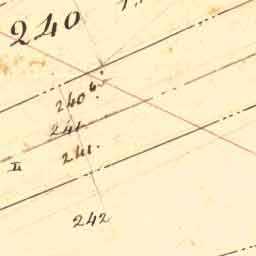 240
240 b.
241
241.
II
242